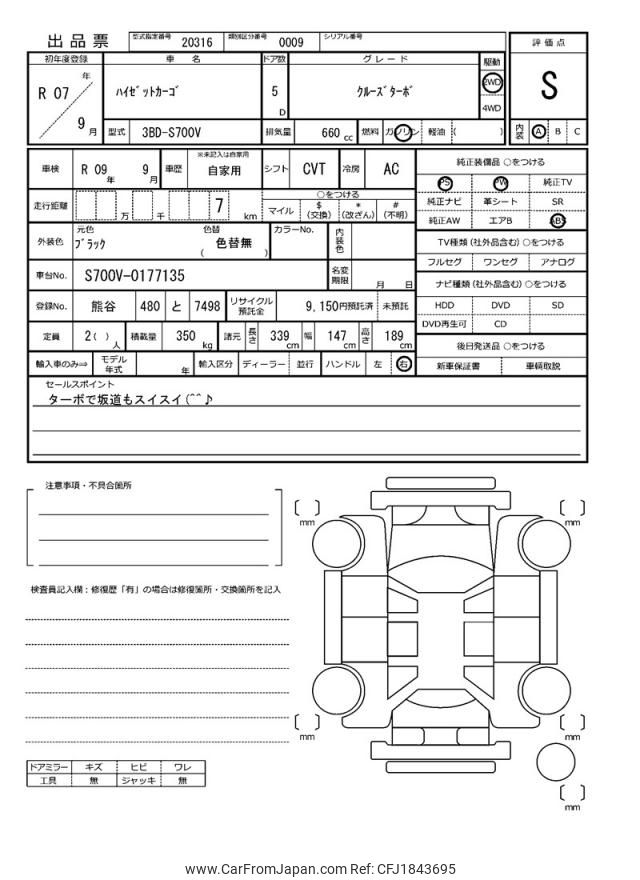 出品票 型式指定番号 20316 類別区分番号 0009 シリアル番号
評価点
S
内装 A B C
初年度登録 車名 ドア数 グレード 駆動
R 07 年 9 月 ハイゼットカーゴ 5 D クルーズターボ 2WD 4WD
型式 3BD-S700V 排気量 660 cc 燃料 ガソリン 軽油 ( )
車検 R 09 年 9 月 車歴 ※未記入は自家用 自家用 シフト CVT 冷房 AC
走行距離 万 千 7 km ○をつける
マイル $(交換) *(改ざん) #(不明)
外装色 元色 ブラック 色替 ( 色替無 ) カラーNo. 内装色
車台No. S700V-0177135 名変期限 月 日
登録No. 熊谷 480 と 7498 リサイクル預託金 9,150円預託済 未預託
定員 2( ) 人 積載量 350 kg 諸元 長さ 339 cm 幅 147 cm 高さ 189 cm
輸入車のみ⇒ モデル年式 年 輸入区分 ディーラー 並行 ハンドル 左 右
純正装備品 ○をつける
PS PW 純正TV
純正ナビ 革シート SR
純正AW エアB ABS
TV種類(社外品含む) ○をつける
フルセグ ワンセグ アナログ
ナビ種類(社外品含む) ○をつける
HDD DVD SD
DVD再生可 CD
後日発送品 ○をつける
新車保証書 車輌取説
セールスポイント
ターボで坂道もスイスイ(^^♪
注意事項・不具合箇所
検査員記入欄:修復歴「有」の場合は修復箇所・交換箇所を記入
[ ] mm [ ] mm
[ ] mm [ ] mm
[ ] mm
ドアミラー キズ ヒビ ワレ
工具 無 ジャッキ 無
www.CarFromJapan.com Ref: CFJ1843695